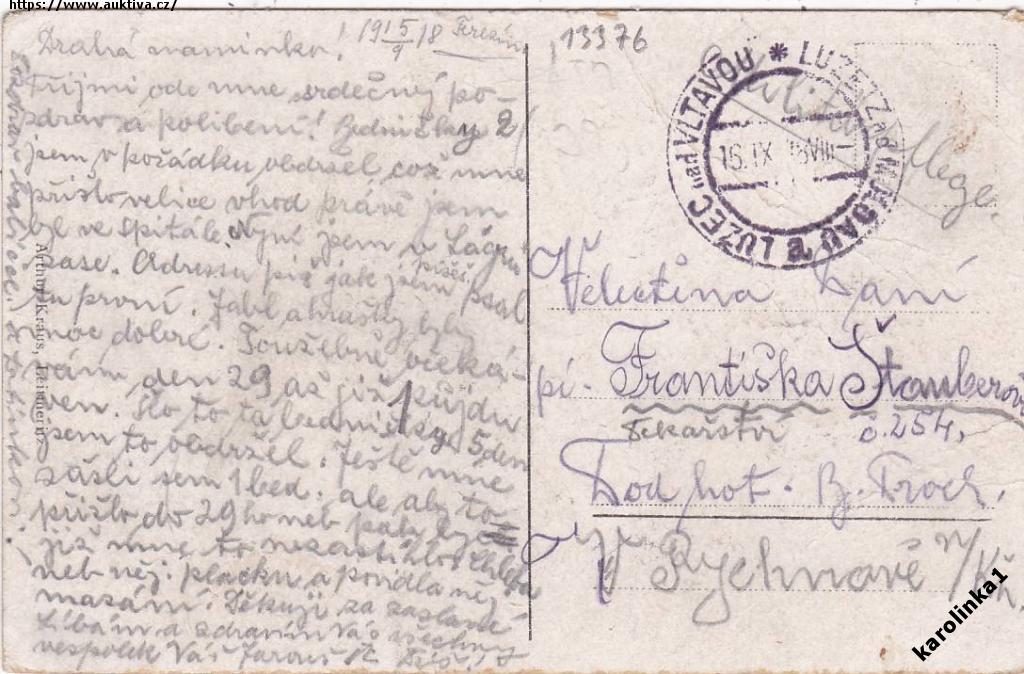 https://www.auktiva.cz/
Drahá maminko! 19 15/9 18 Terezín
Přijmi ode mne srdečný po-
zdrav a políbení! Bedničky 2
jsem v pořádku obdržel což mne
přišlo velice vhod právě jsem
byl ve špitále. Nyní jsem v Lágru
zase. Adressu piš jak jsem psal
tu první. Jabl. a hrušky byly
moc dobré. Toužebně očeká-
vám den 29 až již půjdu
ven. Šlo to ta bednička 5 dní
jsem to obdržel. Ještě mně
zašli sem 1 bed. ale aby to
přišlo do 29 ho neb pak by
již mne to nezastihlo. Chleba
neb něj. placku a povidla něj.
mazání. Děkuji za zaslané
Líbám a zdravím Vás všechny
vespolek Váš Jarouš
Arthur Kraus, Leitmeritz
13376
LUŽEC nad VLTAVOU * LUZETZ nad MOLDAU
16.IX 18 VIII
Velectěná Paní
pí. Františka Štauberová
Pekařství č. 254.
Pod hot. B. Troch.
v Rychnově n/Kn.
karolinka1